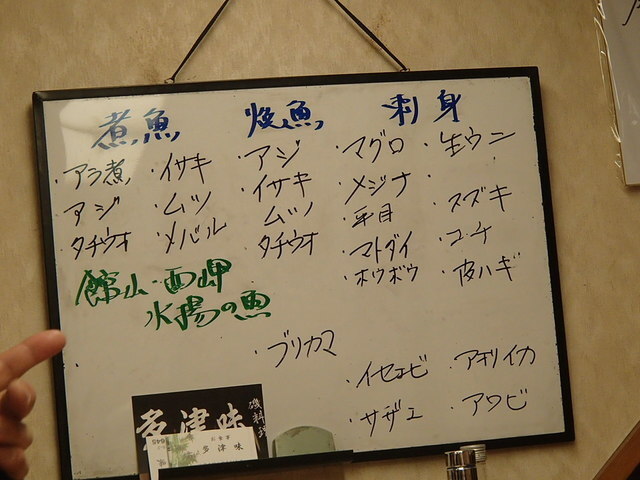 煮魚 焼魚 刺身
・アラ煮 ・イサキ
アジ ・ムツ
タチウオ ・メバル
・アジ
・イサキ
ムツ
タチウオ
・マグロ ・生ウニ
・メジナ
・平目 ・スズキ
・マトダイ ・コチ
・ホウボウ ・皮ハギ
館山・西岬
水揚の魚
・ブリカマ
・イセエビ アオリイカ
サザエ ・アワビ
磯料理
多津味
お食事
多津味